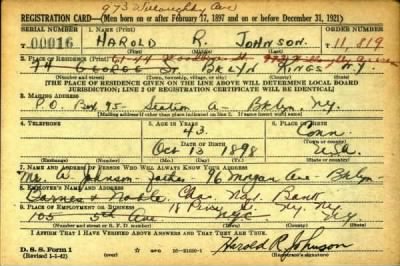 973 Willoughby Ave
REGISTRATION CARD—(Men born on or after February 17, 1897 and on or before December 31, 1921)
SERIAL NUMBER 1. NAME (Print) ORDER NUMBER
U 00016 HAROLD R. JOHNSON 11,819
(First) (Middle) (Last)
2. PLACE OF RESIDENCE (Print)
74 GEORGE ST BKLYN KINGS N.Y
(Number and street) (Town, township, village, or city) (County) (State)
[THE PLACE OF RESIDENCE GIVEN ON THE LINE ABOVE WILL DETERMINE LOCAL BOARD
JURISDICTION; LINE 2 OF REGISTRATION CERTIFICATE WILL BE IDENTICAL]
3. MAILING ADDRESS
P.O Box 95 - Station A - Bklyn N.Y.
4. TELEPHONE 5. AGE IN YEARS 6. PLACE OF BIRTH
43. Conn
DATE OF BIRTH (Town or county)
Oct 13 1898 U.S.A.
(Exchange) (Number) (Mo.) (Day) (Yr.) (State or country)
7. NAME AND ADDRESS OF PERSON WHO WILL ALWAYS KNOW YOUR ADDRESS
Mr. A Johnson - father - 76 Morgan Ave - Bklyn -
8. EMPLOYER'S NAME AND ADDRESS
Barnes & Noble Bank
9. PLACE OF EMPLOYMENT OR BUSINESS
105 5th Ave NYC NY.
(Number and street or R. F. D. number) (Town) (County) (State)
I AFFIRM THAT I HAVE VERIFIED ABOVE ANSWERS AND THAT THEY ARE TRUE.
D. S. S. Form 1
(Revised 1-1-42) (over) Harold R. Johnson